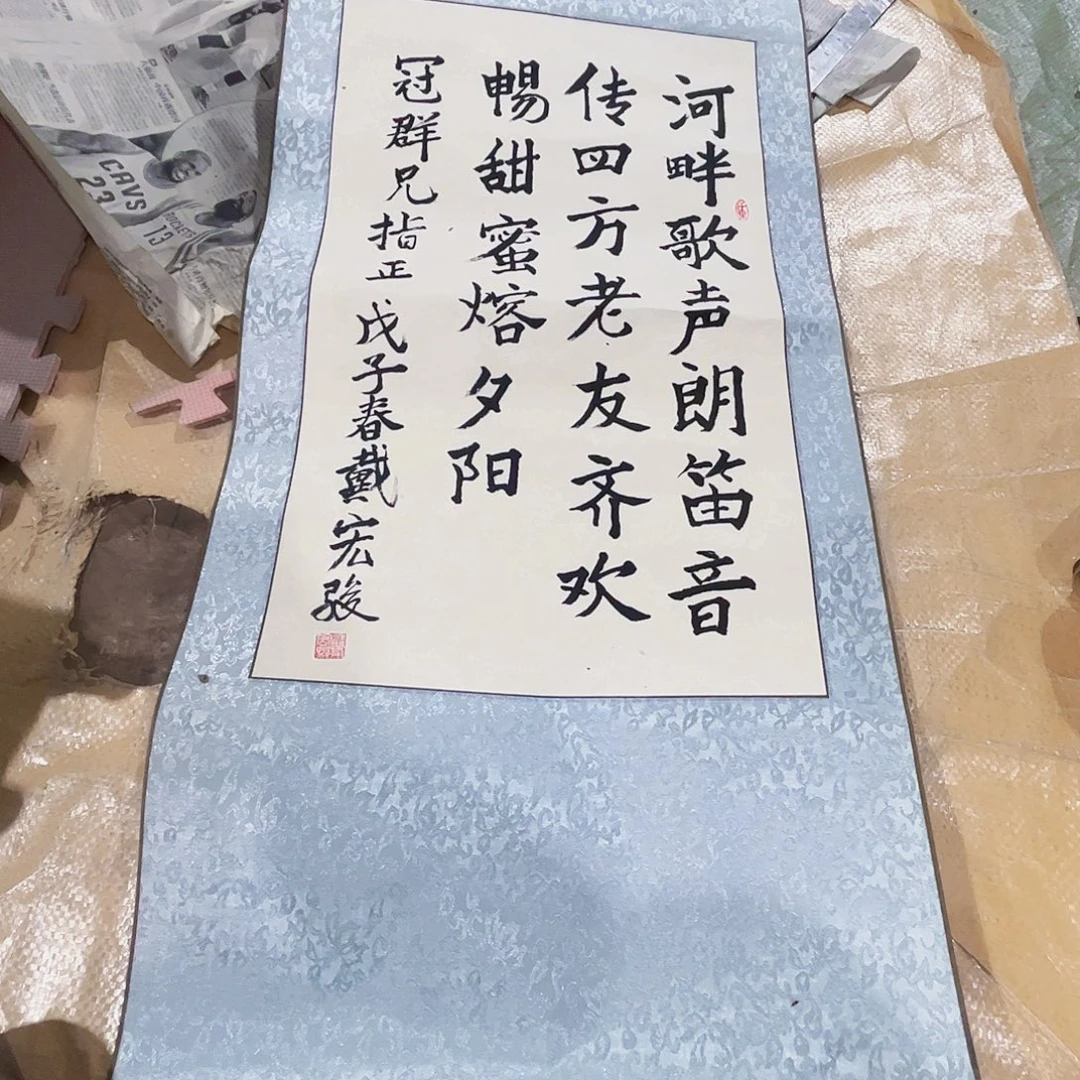 河畔歌声朗笛音
传四方老友齐欢
暢甜蜜熔夕阳
冠群兄指正 戊子春戴宏骏
CAVS
23
ROCKETS
13